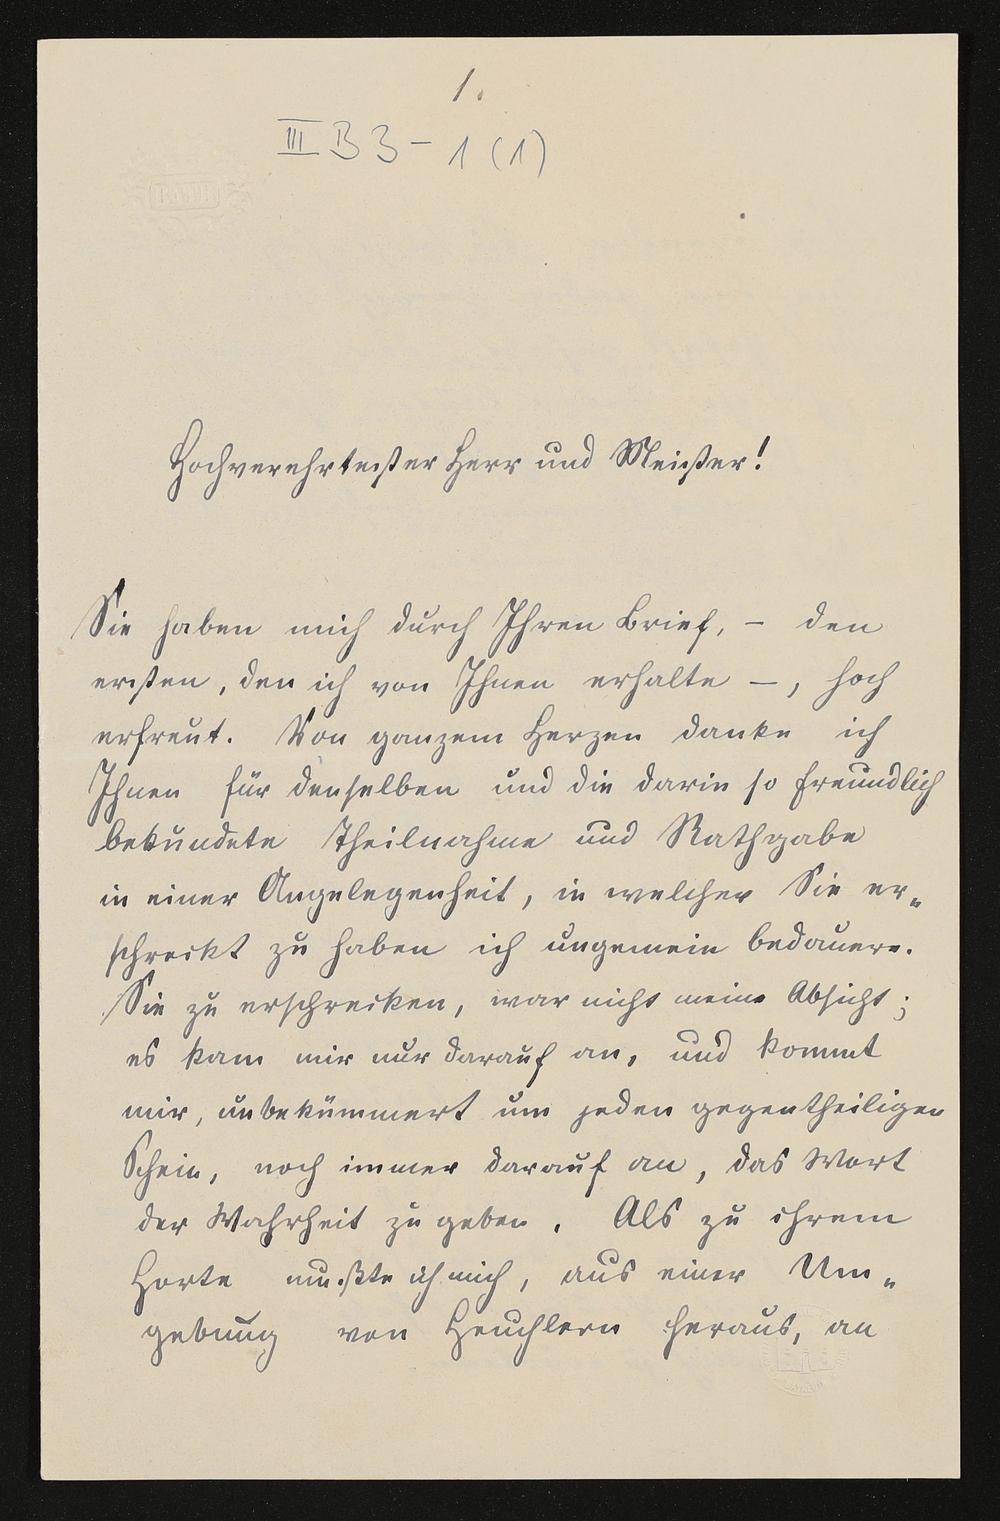 1.
III B 3 - 1 (1)
BATH
Hochverehrtester Herr und Meister!
Sie haben mich durch Ihren Brief, – den
ersten, den ich von Ihnen erhalte –, hoch
erfreut. Von ganzem Herzen danke ich
Ihnen für denselben und die darin so freundlich
bekundete Theilnahme und Rathgabe
in einer Angelegenheit, in welcher Sie er„
schreckt zu haben ich ungemein bedauere.
Sie zu erschrecken, war nicht meine Absicht;
es kam mir nur darauf an, und kommt
mir, unbekümmert um jeden gegentheiligen
Schein, noch immer darauf an, das Wort
der Wahrheit zu geben. Als zu ihrem
Horte mußte ich mich, aus einer Um„
gebung von Heuchlern heraus, an